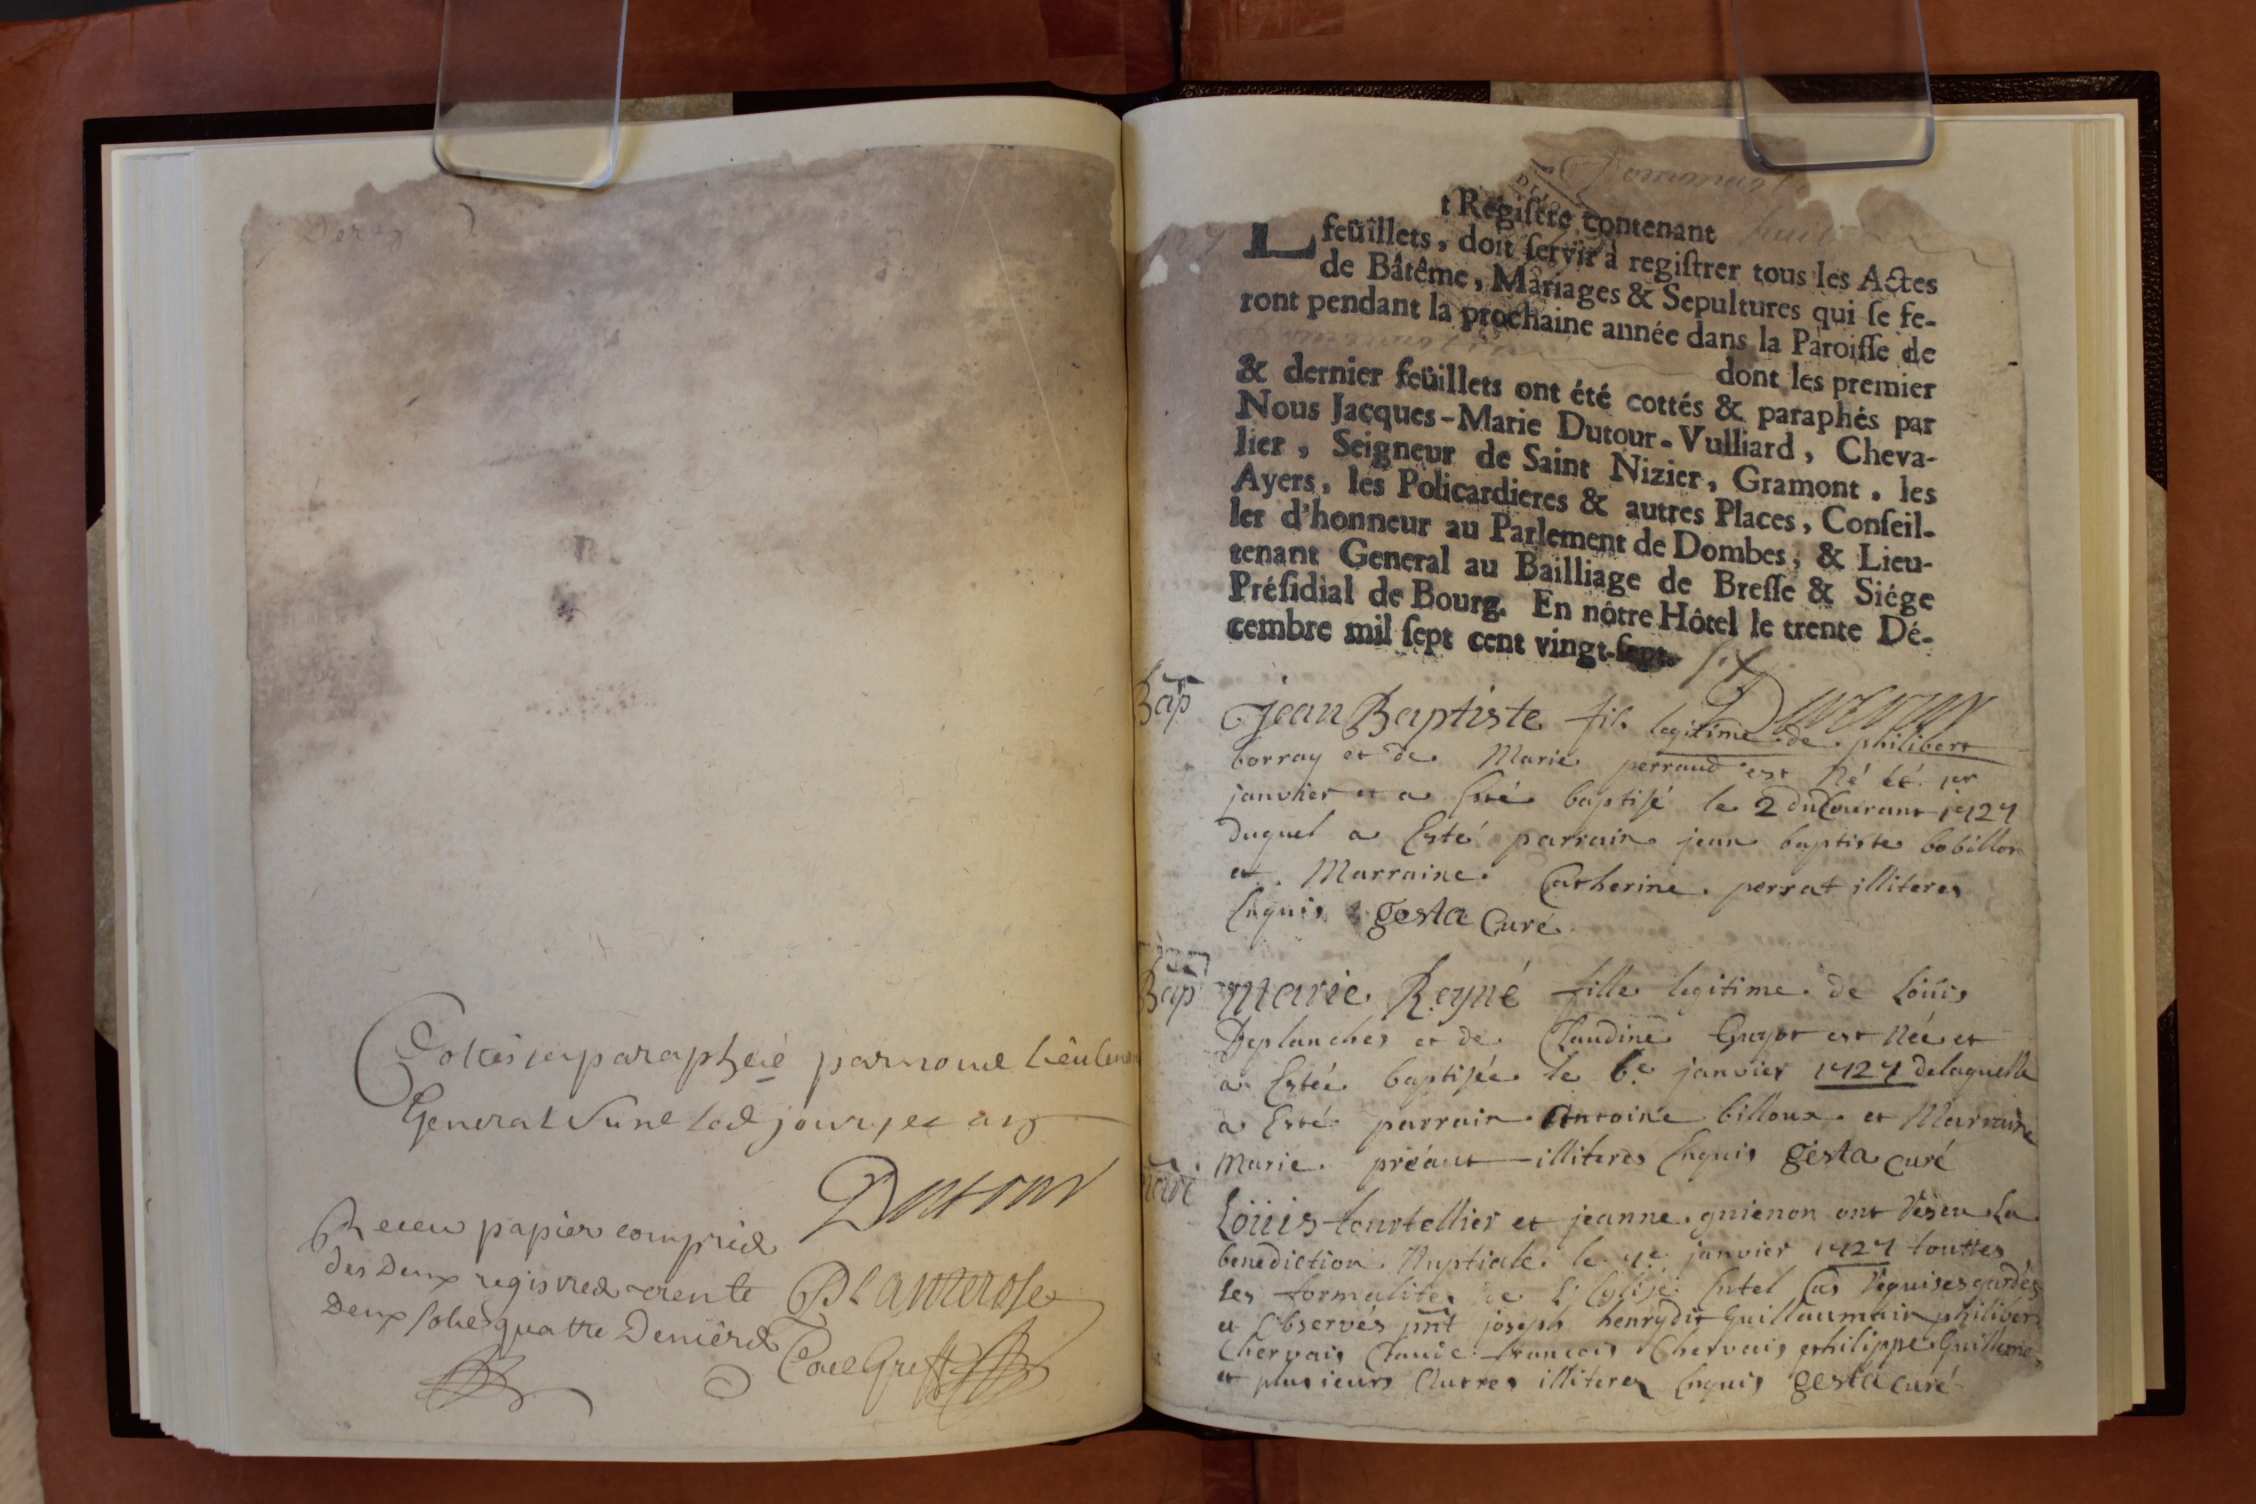 Cottés et paraphé par nous Lieutenant
General susne led jour, et an
Dutour
Receu papier compris
des deux registres trente
deux sols quatre deniers
Planterose
Com Greff
t Regiſtre contenant
feüillets, doit ſervir à regiſtrer tous les Actes
de Bâtême, Mariages & Sepultures qui ſe fe-
ront pendant la prochaine année dans la Paroiſſe de
dont les premier
& dernier feüillets ont été cottés & paraphés par
Nous Jacques-Marie Dutour-Vulliard, Cheva-
lier, Seigneur de Saint Nizier, Gramont, les
Ayers, les Policardieres & autres Places, Conſeil-
ler d'honneur au Parlement de Dombes, & Lieu-
tenant General au Bailliage de Breſſe & Siége
Préſidial de Bourg. En nôtre Hôtel le trente Dé-
cembre mil ſept cent vingt-ſept. six
Dutour
Bap
jean Baptiste fils legitime de philibert
borray et de Marie perraud est Né le 1er
janvier et a Esté baptisé le 2 du Courant 1727
duquel a Esté parrain jean baptiste bobillon
et Marraine Catherine perrat illiteres
Enquis gesta Curé
Bap
marie Reyné fille legitime de Loüis
Deplanches et de Claudine Guyot est Née et
a Estée baptisée le 6e janvier 1727 delaquelle
a Esté parrain Antoine billoux et Marraine
Marie préaut illiteres Enquis gesta curé
Loüis tourtellier et jeanne guienon ont Réseu La
benediction Nuptiale le 7e janvier 1727 touttes
les formalites de L'Eglise Entel Cas Réquises gardés
et Observés pnt joseph henry dit Guillaumain philiber
Chervais Claude francois Chervais philippe Guilleme
et plusieurs Autres illiteres Enquis gesta curé